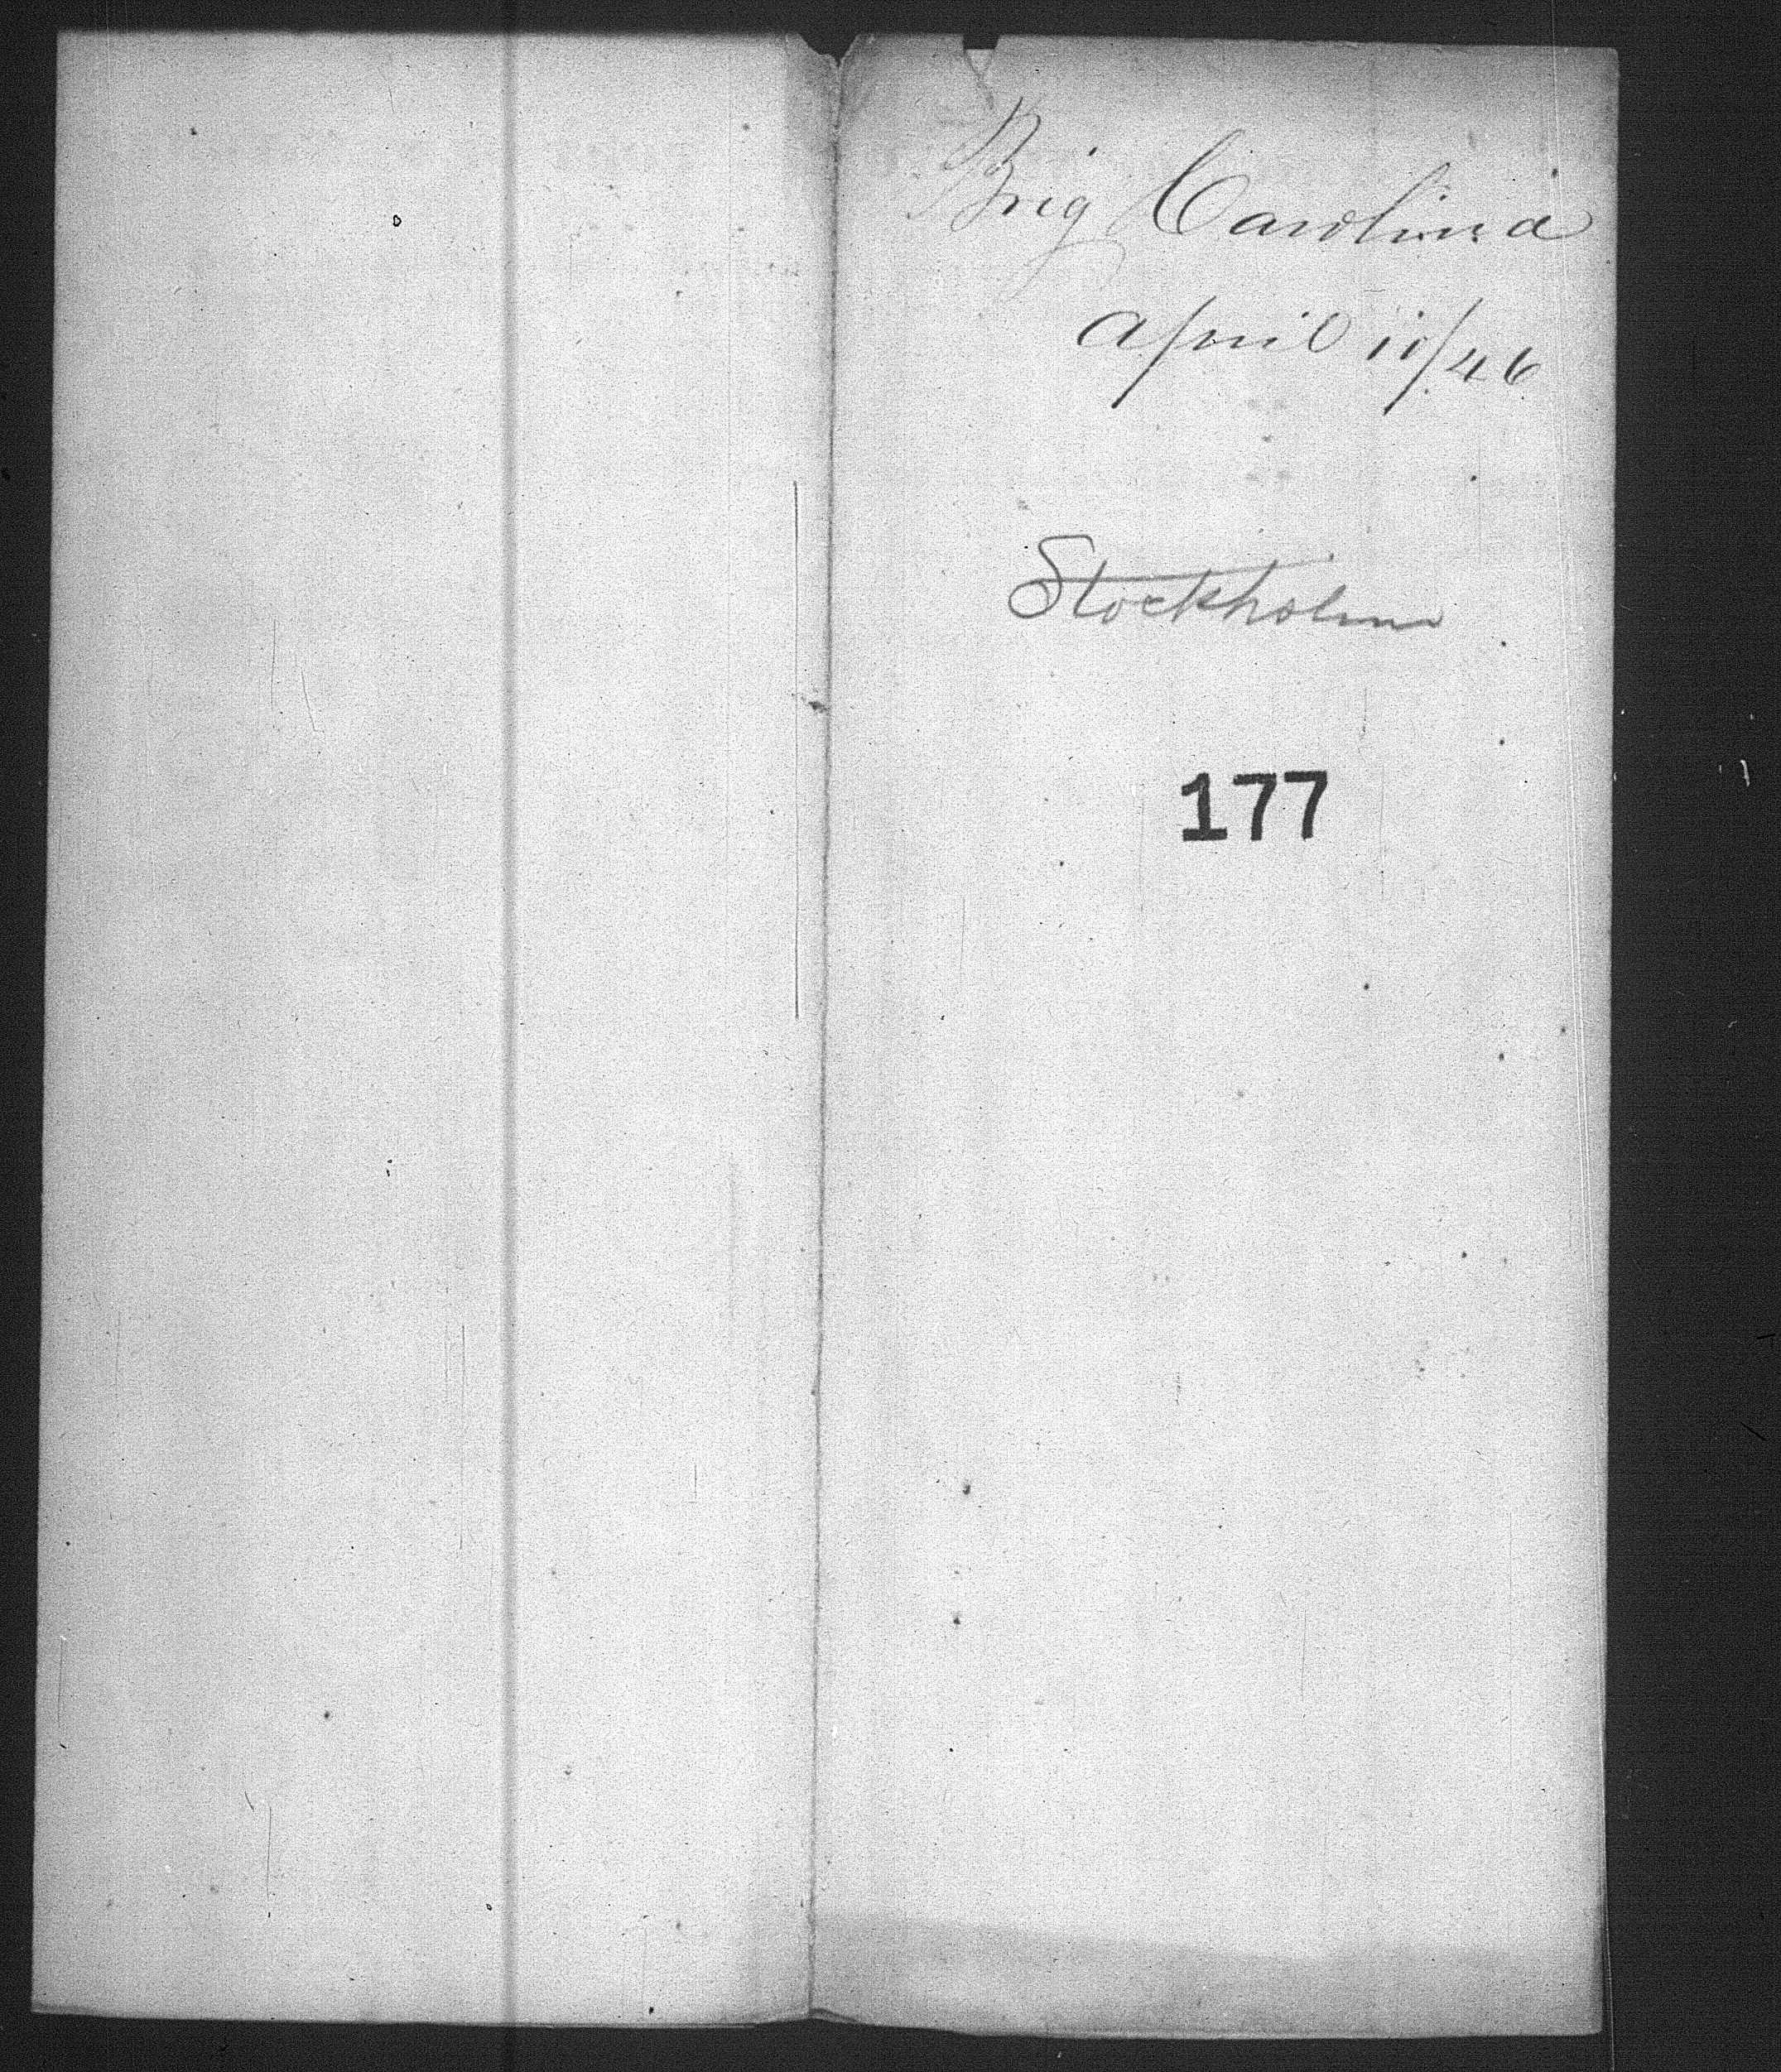 Brig Carolina
April 11/46
Stockholm
177